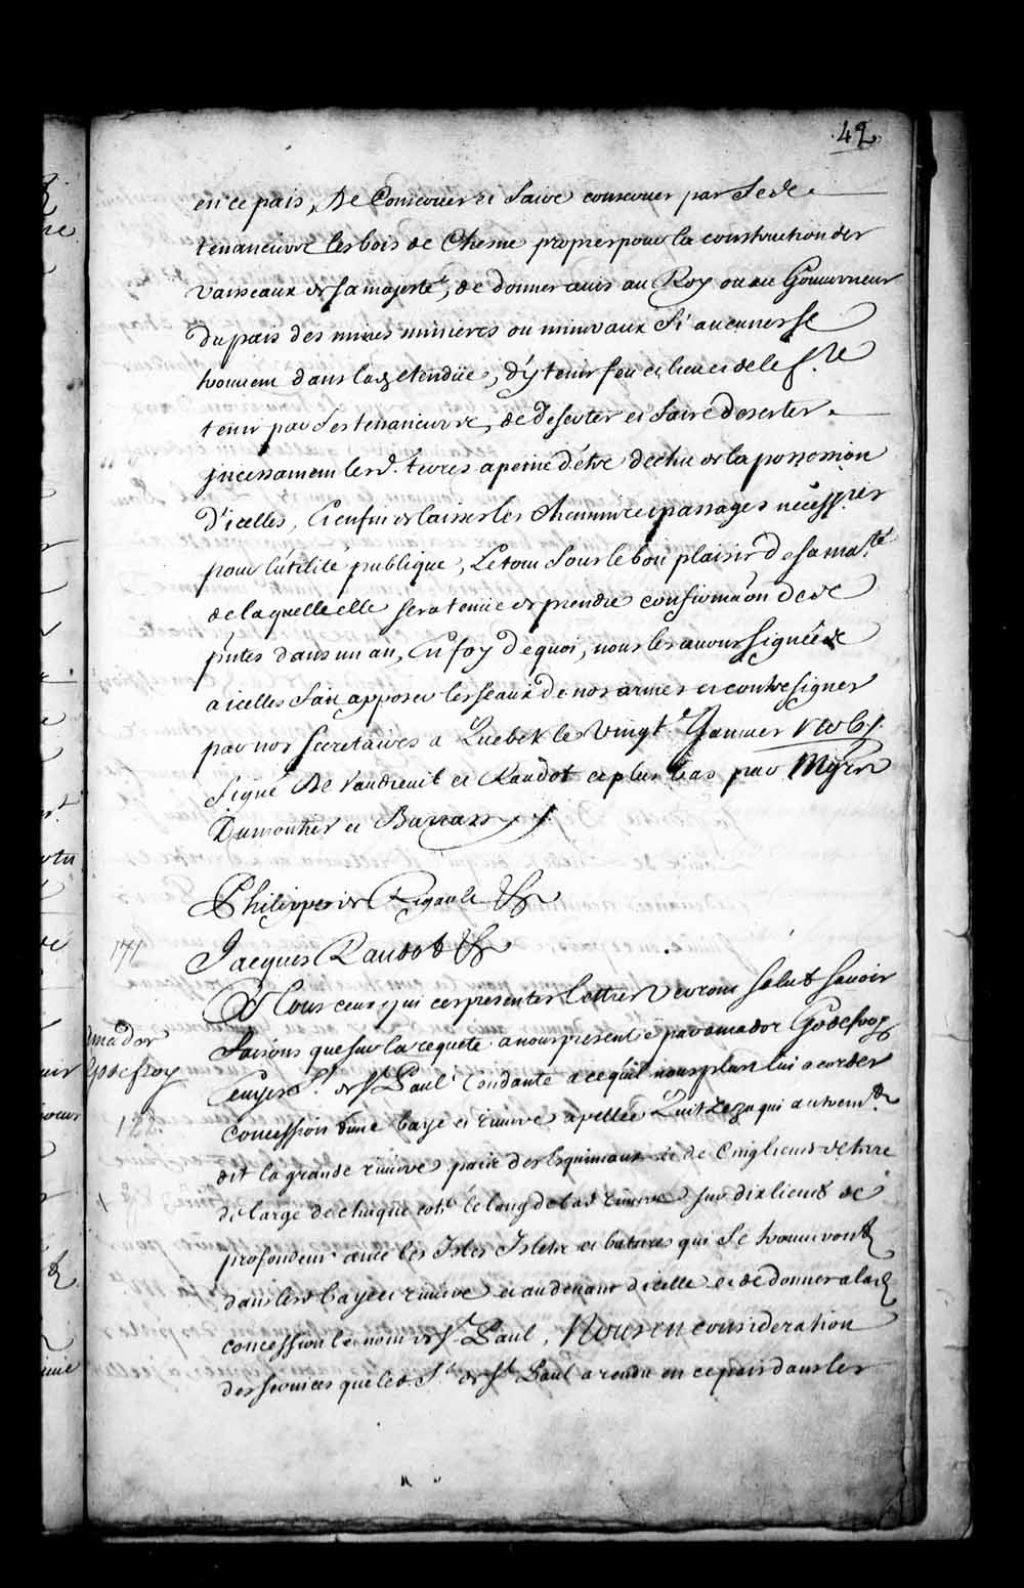 42
en ce pais, De Conserver et faire conserver par Ses de
tenanciers les bois de Chesne propres pour la construction des
vaisseaux de sa majesté, de donner avis au Roy ou au Gouverneur
du pais des mines minieres ou mineraux Si aucunes se
trouvent dans lad. etendüe, d'y tenir feu et lieu et de le f.re
tenir par Ses tenanciers, de deserter et faire deserter
incessament lesd. terres a peine d'etre dechu de la possession
d'icelles, Et enfin de laisser les chemins et passages necess.res
pour l'utilité publique, Le tout Sous le bon plaisir de sa ma.té
de laquelle elle sera tenüe de prendre confirmaōn des
p'ntes dans un an, En foy de quoi, nous les avons signées
a icelles fait apposer les seaux de nos armes et contresigner
par nos secretaires a Quebek le Vingt Janvier
signé De Vaudreuil et Raudot et plus bas par Mgrs
Dumontier et Barrase
Philippe de Rigault &c
Jacques Raudot &c
A Tous ceux qui ces presentes lettres verront Salut Savoir
amador
faisons que sur la requete a nous presentée par amador Godefroy
Godefroy
Ecuyer S.r de S.t Paul Tendante a ce qu'il nous plust lui acorder
concession d'une baye et riviere apellée qui autrem.t
dit la grande riviere païs des Esquimaux et de Cinq lieues de terre
de large de chaque coté le long de lad. riviere sur dix lieues de
profondeur avec les Isles Islets et batures qui se trouveront
dans lesd. baye et riviere et audevant d'icelle et de donner a lad.
concession le nom de S.t Paul, Nous en consideration
des services que led. S.r de S.t Paul a rendu en ce pais dans les